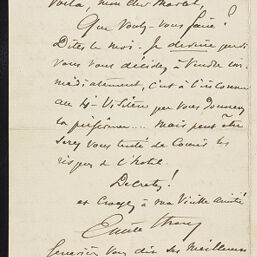 Voilà, mon cher Martel,
Que voulez-vous faire ?
Dites le moi - Je devine que si
vous vous décidez à vendre im-
médiatement, c'est à l'inconnu
que vous donnerez
la préférence.... mais peut être
serez vous tenté de courir les
risques de l'hôtel.
Decrets !
et croyez à ma vieille amitié
Emile
Geneviève vous dit ses meilleurs